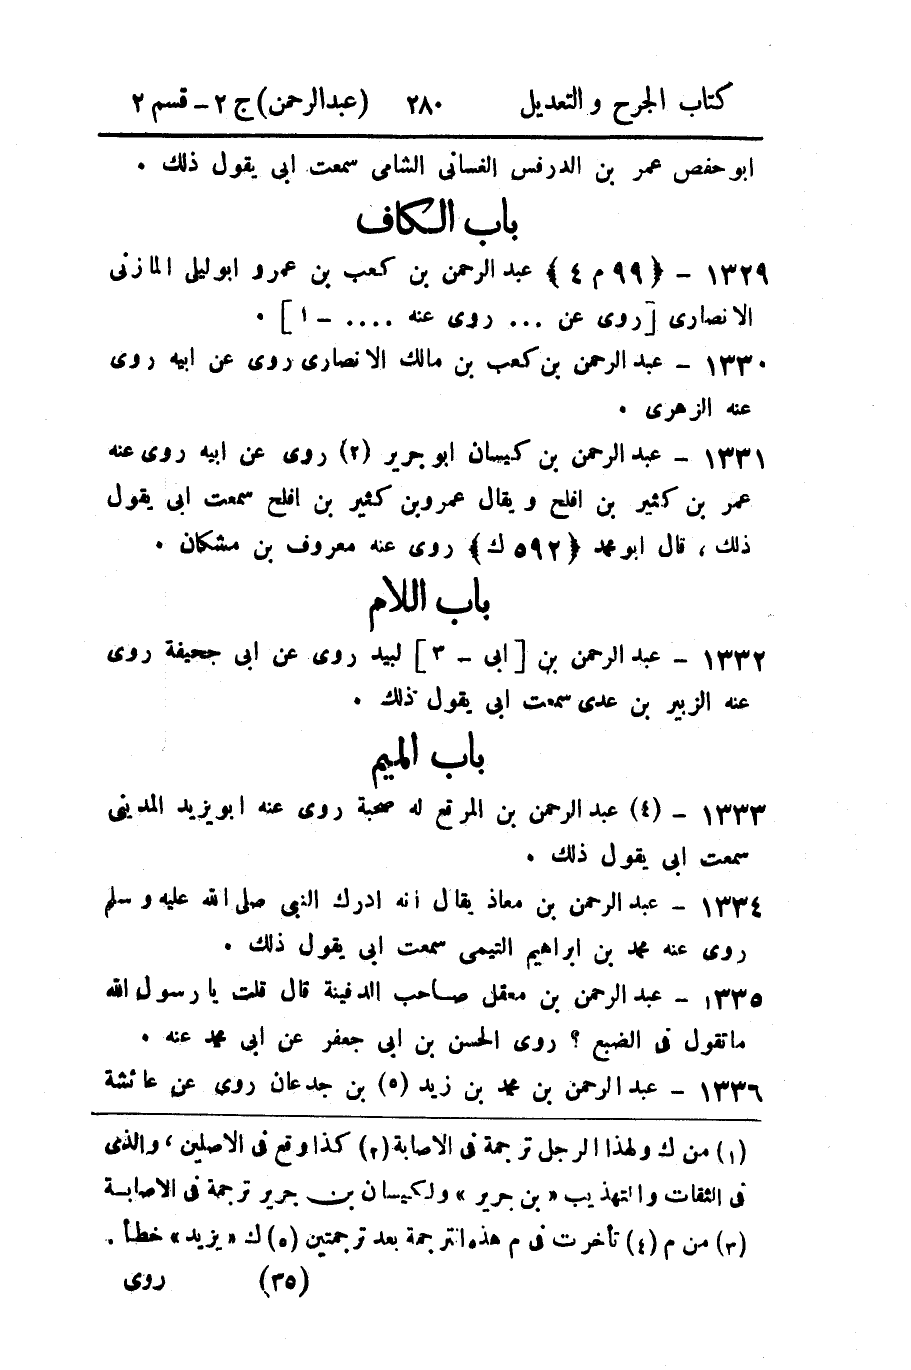 كتاب الجرح والتعديل ٢٨٠ (عبدالرحمن) ج ٢ - قسم ٢
ابوحفص عمر بن الدرفس الغسانى الشامى سمعت ابى يقول ذلك ٠
باب الكاف
١٣٢٩ - ﴿٩٩ م ٤﴾ عبد الرحمن بن كعب بن عمرو ابوليلى المازنى
الانصارى [روى عن ... روى عنه .... - ١] ٠
١٣٣٠ - عبد الرحمن بن كعب بن مالك الانصارى روى عن ابيه روى
عنه الزهرى ٠
١٣٣١ - عبد الرحمن بن كيسان ابو جرير (٢) روى عن ابيه روى عنه
عمر بن كثير بن افلح ويقال عمروبن كثير بن افلح سمعت ابى يقول
ذلك ، قال ابو محمد ﴿٥٩٢ ك﴾ روى عنه معروف بن مشكان ٠
باب اللام
١٣٣٢ - عبد الرحمن بن [ابى - ٣] لبيد روى عن ابى جحيفة روى
عنه الزبير بن عدى سمعت ابى يقول ذلك ٠
باب الميم
١٣٣٣ - (٤) عبد الرحمن بن المرقع له صحبة روى عنه ابو يزيد المدينى
سمعت ابى يقول ذلك ٠
١٣٣٤ - عبد الرحمن بن معاذ يقال انه ادرك النبى صلى الله عليه وسلم
روى عنه محمد بن ابراهيم التيمى سمعت ابى يقول ذلك ٠
١٣٣٥ - عبد الرحمن بن معقل صاحب الدفينة قال قلت يا رسول الله
ماتقول فى الضبع ؟ روى الحسن بن ابى جعفر عن ابى محمد عنه ٠
١٣٣٦ - عبد الرحمن بن محمد بن زيد (٥) بن جدعان روى عن عائشة
(١) من ك ولهذا الرجل ترجمة فى الاصابة (٢) كذا وقع فى الاصلين ، والذى
فى الثقات والتهذيب « بن جرير » ولكيسان بن جرير ترجمة فى الاصابة
(٣) من م (٤) تأخرت فى م هذه الترجمة بعد ترجمتين (٥) ك « يزيد » خطأ .
(٣٥) روى